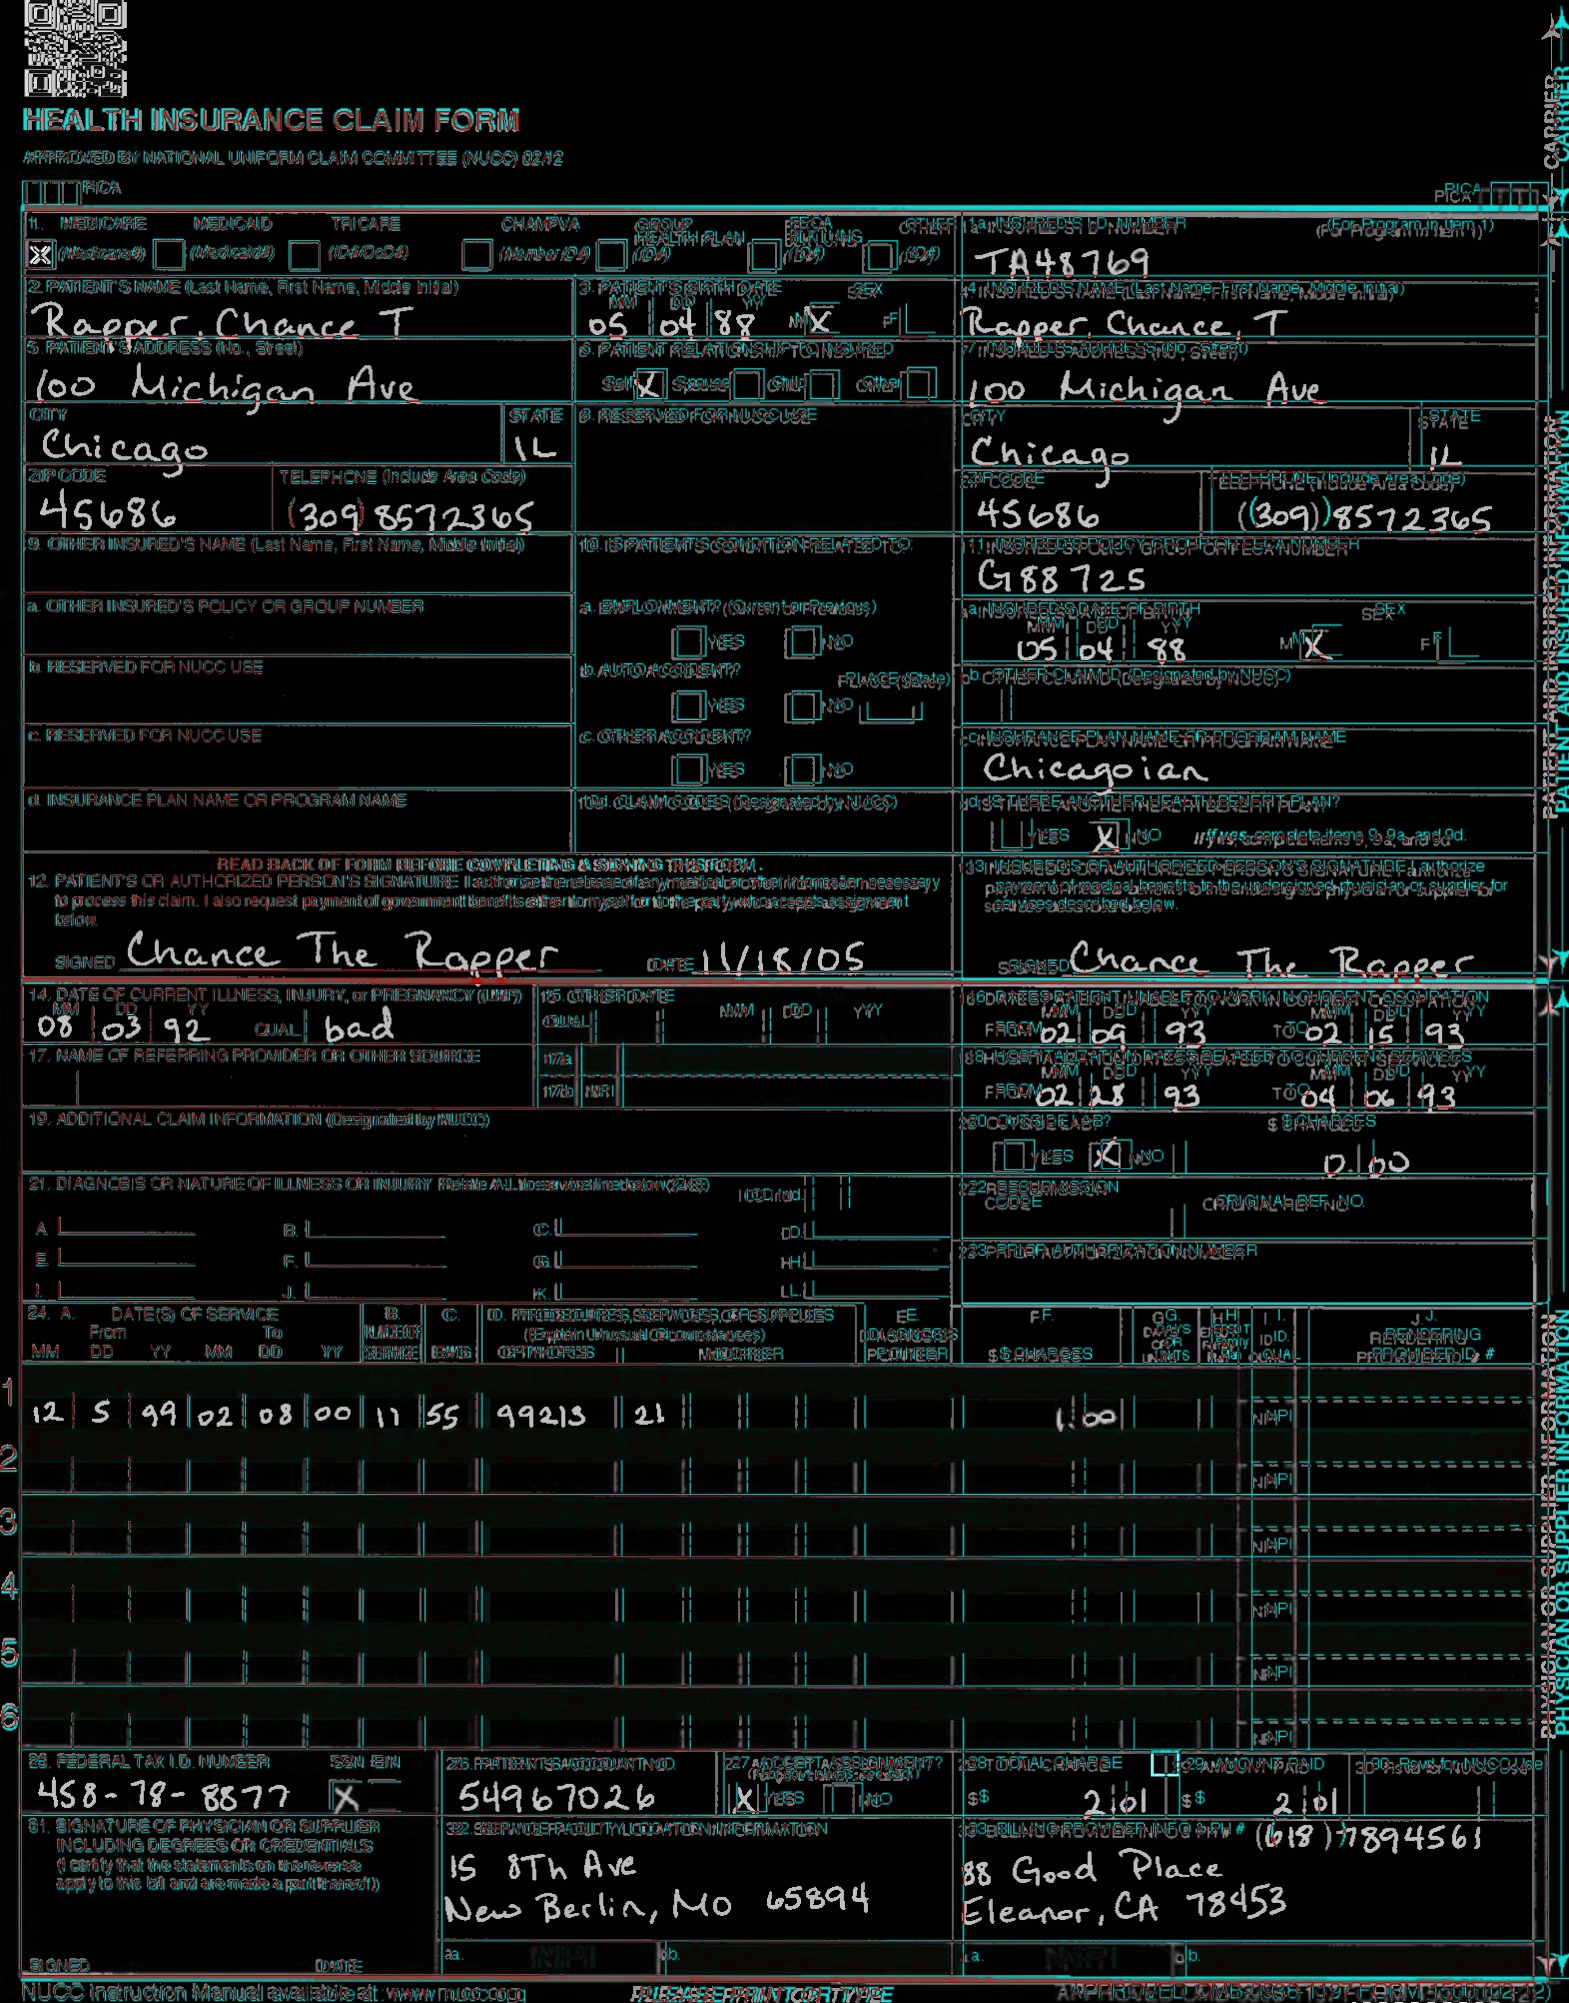 HEALTH INSURANCE CLAIM FORM
APPROVED BY NATIONAL UNIFORM CLAIM COMMITTEE (NUCC) 02/12
CARRIER
PICA PICA
1. MEDICARE MEDICAID TRICARE CHAMPVA GROUP HEALTH PLAN FECA BLK LUNG OTHER
X (Medicare#) (Medicaid#) (ID#/DoD#) (Member ID#) (ID#) (ID#) (ID#)
1a. INSURED'S I.D. NUMBER (For Program in Item 1)
TA48769
2. PATIENT'S NAME (Last Name, First Name, Middle Initial)
Rapper, Chance T
3. PATIENT'S BIRTH DATE SEX
MM DD YY
05 04 88 M X F
4. INSURED'S NAME (Last Name, First Name, Middle Initial)
Rapper, Chance, T
5. PATIENT'S ADDRESS (No., Street)
100 Michigan Ave
6. PATIENT RELATIONSHIP TO INSURED
Self X Spouse Child Other
7. INSURED'S ADDRESS (No., Street)
100 Michigan Ave
CITY STATE
Chicago IL
8. RESERVED FOR NUCC USE
CITY STATE
Chicago IL
ZIP CODE TELEPHONE (Include Area Code)
45686 (309) 8572365
ZIP CODE TELEPHONE (Include Area Code)
45686 (309) 8572365
9. OTHER INSURED'S NAME (Last Name, First Name, Middle Initial)
10. IS PATIENT'S CONDITION RELATED TO:
11. INSURED'S POLICY GROUP OR FECA NUMBER
G88725
a. OTHER INSURED'S POLICY OR GROUP NUMBER
a. EMPLOYMENT? (Current or Previous)
YES NO
a. INSURED'S DATE OF BIRTH SEX
MM DD YY
05 04 88 M X F
b. RESERVED FOR NUCC USE
b. AUTO ACCIDENT? PLACE (State)
YES NO
b. OTHER CLAIM ID (Designated by NUCC)
c. RESERVED FOR NUCC USE
c. OTHER ACCIDENT?
YES NO
c. INSURANCE PLAN NAME OR PROGRAM NAME
Chicagoian
d. INSURANCE PLAN NAME OR PROGRAM NAME
10d. CLAIM CODES (Designated by NUCC)
d. IS THERE ANOTHER HEALTH BENEFIT PLAN?
YES X NO If yes, complete items 9, 9a, and 9d.
PATIENT AND INSURED INFORMATION
READ BACK OF FORM BEFORE COMPLETING & SIGNING THIS FORM.
12. PATIENT'S OR AUTHORIZED PERSON'S SIGNATURE I authorize the release of any medical or other information necessary
to process this claim. I also request payment of government benefits either to myself or to the party who accepts assignment
below.
SIGNED Chance The Rapper DATE 11/18/05
13. INSURED'S OR AUTHORIZED PERSON'S SIGNATURE I authorize
payment of medical benefits to the undersigned physician or supplier for
services described below.
SIGNED Chance The Rapper
14. DATE OF CURRENT ILLNESS, INJURY, or PREGNANCY (LMP)
MM DD YY
08 03 92 QUAL. bad
15. OTHER DATE
QUAL. MM DD YY
16. DATES PATIENT UNABLE TO WORK IN CURRENT OCCUPATION
MM DD YY MM DD YY
FROM 02 09 93 TO 02 15 93
17. NAME OF REFERRING PROVIDER OR OTHER SOURCE
17a.
17b. NPI
18. HOSPITALIZATION DATES RELATED TO CURRENT SERVICES
MM DD YY MM DD YY
FROM 02 28 93 TO 04 06 93
19. ADDITIONAL CLAIM INFORMATION (Designated by NUCC)
20. OUTSIDE LAB? $ CHARGES
YES X NO 0.00
21. DIAGNOSIS OR NATURE OF ILLNESS OR INJURY Relate A-L to service line below (24E) ICD Ind.
A. B. C. D.
E. F. G. H.
I. J. K. L.
22. RESUBMISSION CODE ORIGINAL REF. NO.
23. PRIOR AUTHORIZATION NUMBER
24. A. DATE(S) OF SERVICE B. C. D. PROCEDURES, SERVICES, OR SUPPLIES E. F. G. H. I. J.
From To PLACE OF (Explain Unusual Circumstances) DIAGNOSIS DAYS OR EPSDT ID. RENDERING
MM DD YY MM DD YY SERVICE EMG CPT/HCPCS MODIFIER POINTER $ CHARGES UNITS QUAL. PROVIDER ID. #
1 12 5 99 02 08 00 11 55 99213 21 1.00 NPI
2 NPI
3 NPI
4 NPI
5 NPI
6 NPI
PHYSICIAN OR SUPPLIER INFORMATION
25. FEDERAL TAX I.D. NUMBER SSN EIN
458-78-8877 X
26. PATIENT'S ACCOUNT NO.
54967026
27. ACCEPT ASSIGNMENT?
X YES NO
28. TOTAL CHARGE
$ 2 01
29. AMOUNT PAID
$ 2 01
30. Rsvd for NUCC Use
31. SIGNATURE OF PHYSICIAN OR SUPPLIER
INCLUDING DEGREES OR CREDENTIALS
(I certify that the statements on the reverse
apply to this bill and are made a part thereof.)
SIGNED DATE
32. SERVICE FACILITY LOCATION INFORMATION
15 8Th Ave
New Berlin, MO 65894
a. NPI b.
33. BILLING PROVIDER INFO & PH # (618) 7894561
88 Good Place
Eleanor, CA 78453
a. NPI b.
NUCC Instruction Manual available at: www.nucc.org PLEASE PRINT OR TYPE